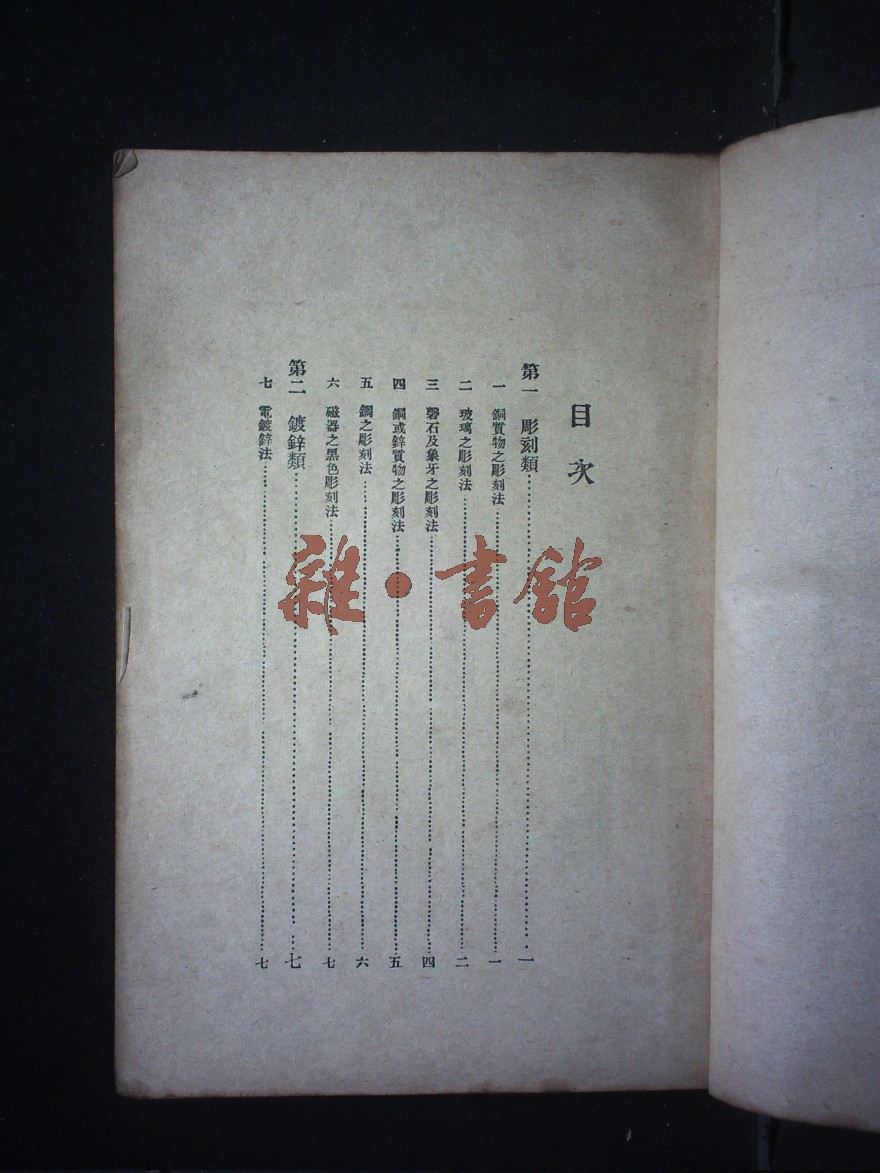 目次
第一　彫刻類……一
一　銅質物之彫刻法……一
二　玻璃之彫刻法……二
三　礬石及象牙之彫刻法……四
四　鋼或鋅質物之彫刻法……五
五　鋼之彫刻法……六
六　磁器之黑色彫刻法……七
第二　鍍鋅類……七
七　電鍍鋅法……七
雜·書館